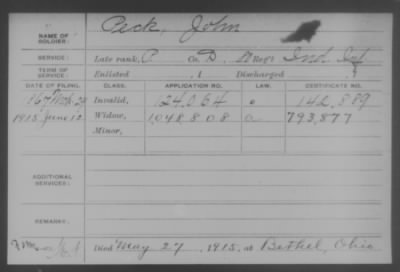 Peck, John
NAME OF SOLDIER:
SERVICE: Late rank, P. Co. D, 10 Reg't Ind. Inf
TERM OF SERVICE: Enlisted , 1 Discharged , 1
DATE OF FILING. CLASS. APPLICATION NO. LAW. CERTIFICATE NO.
1867 Invalid, 124.064 142,889
1915 June 12 Widow, 1,048,808 793,877
Minor,
ADDITIONAL SERVICES:
REMARKS:
Died May 27, 1915, at Bethel, Ohio